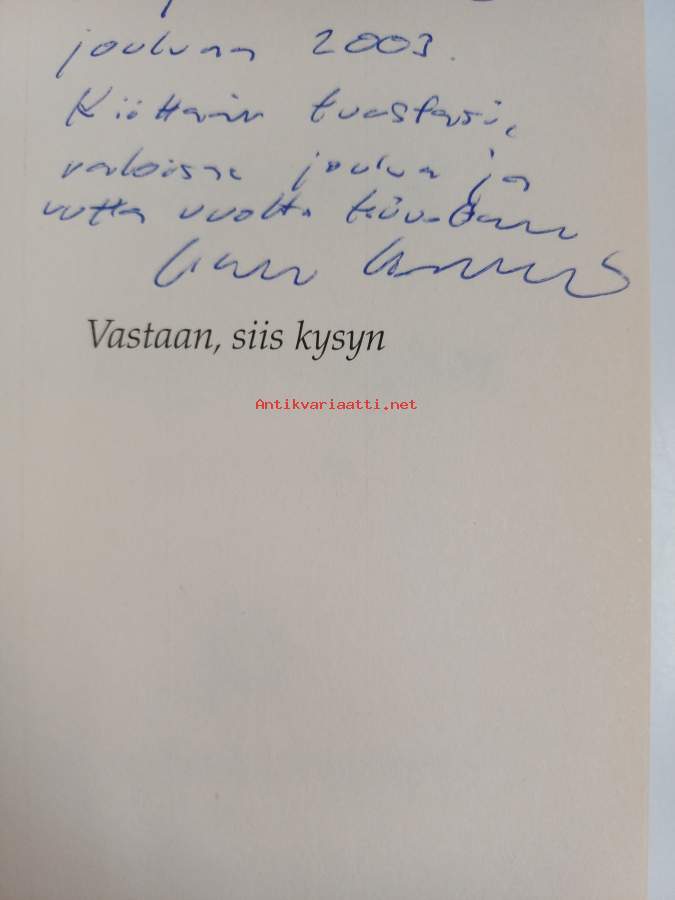 jouluna 2003.
Kiittäen tuestasi,
valoisaa joulua ja
uutta vuotta
Vastaan, siis kysyn
Antikvariaatti.net